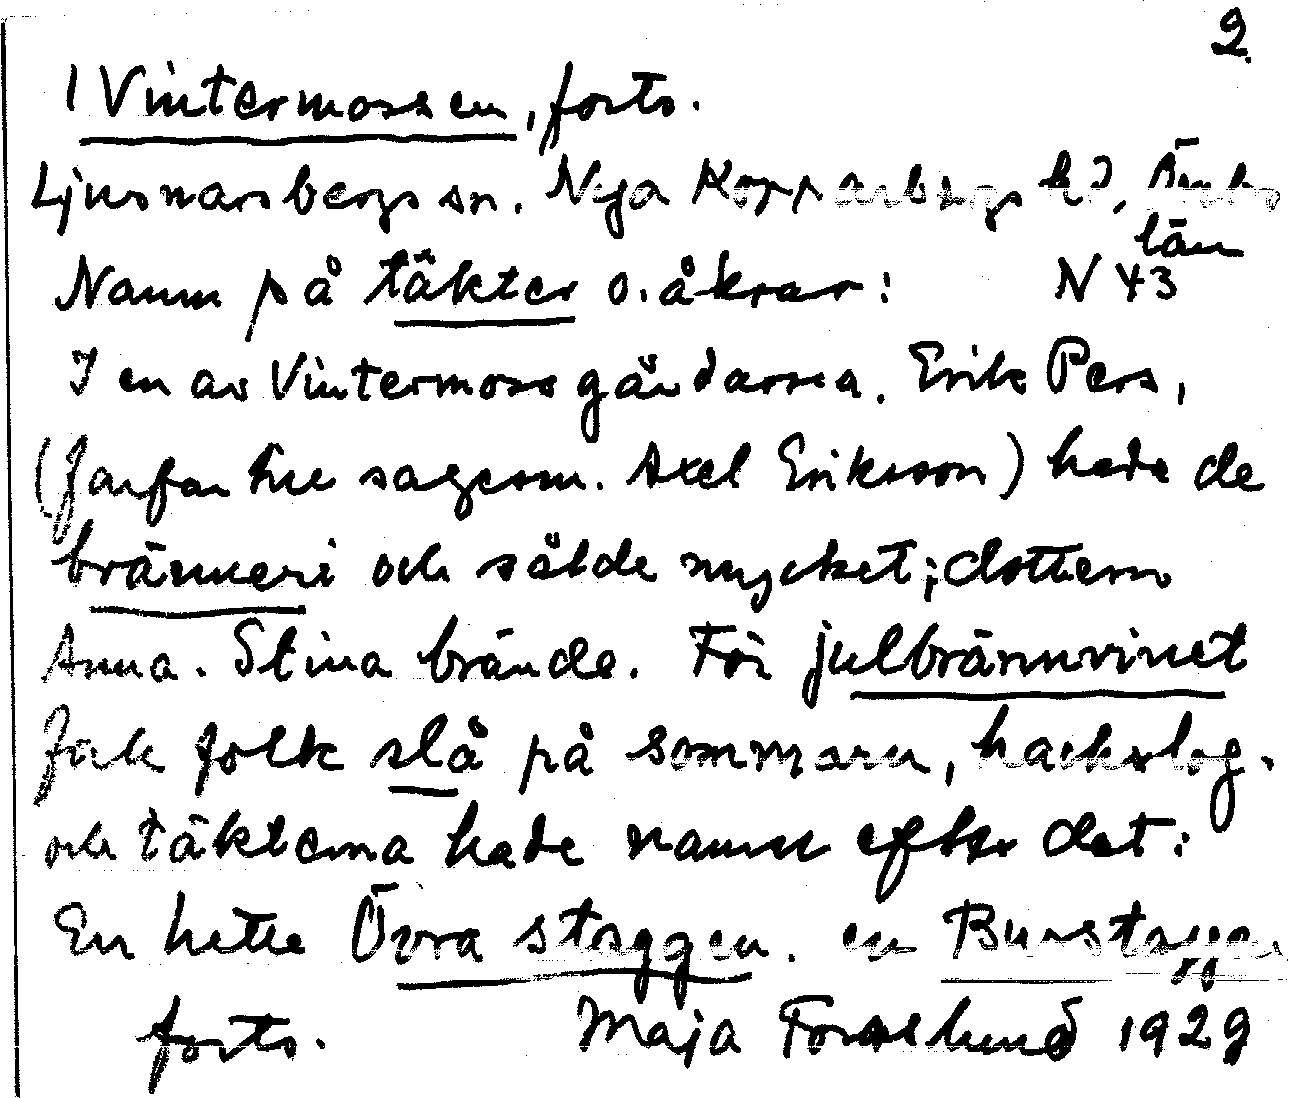 2.
1 Vintermossen, forts.
Ljusnarsbergs sn. Nya Kopparbergs hd, Örebro
län
Namn på täkter o. åkrar: N 43
I en av Vintermossgårdarna. Erik Pers,
(farfar t. sagesm. Axel Eriksson) hade de
bränneri och sålde mycket; dottern
Anna. Stina brände. För julbrännvinet
fick folk slå på sommarn, hackslog.
och täkterna hade namn efter det:
En hette Övra staggen. en Burstaggen
forts. Maja Forsslund 1929